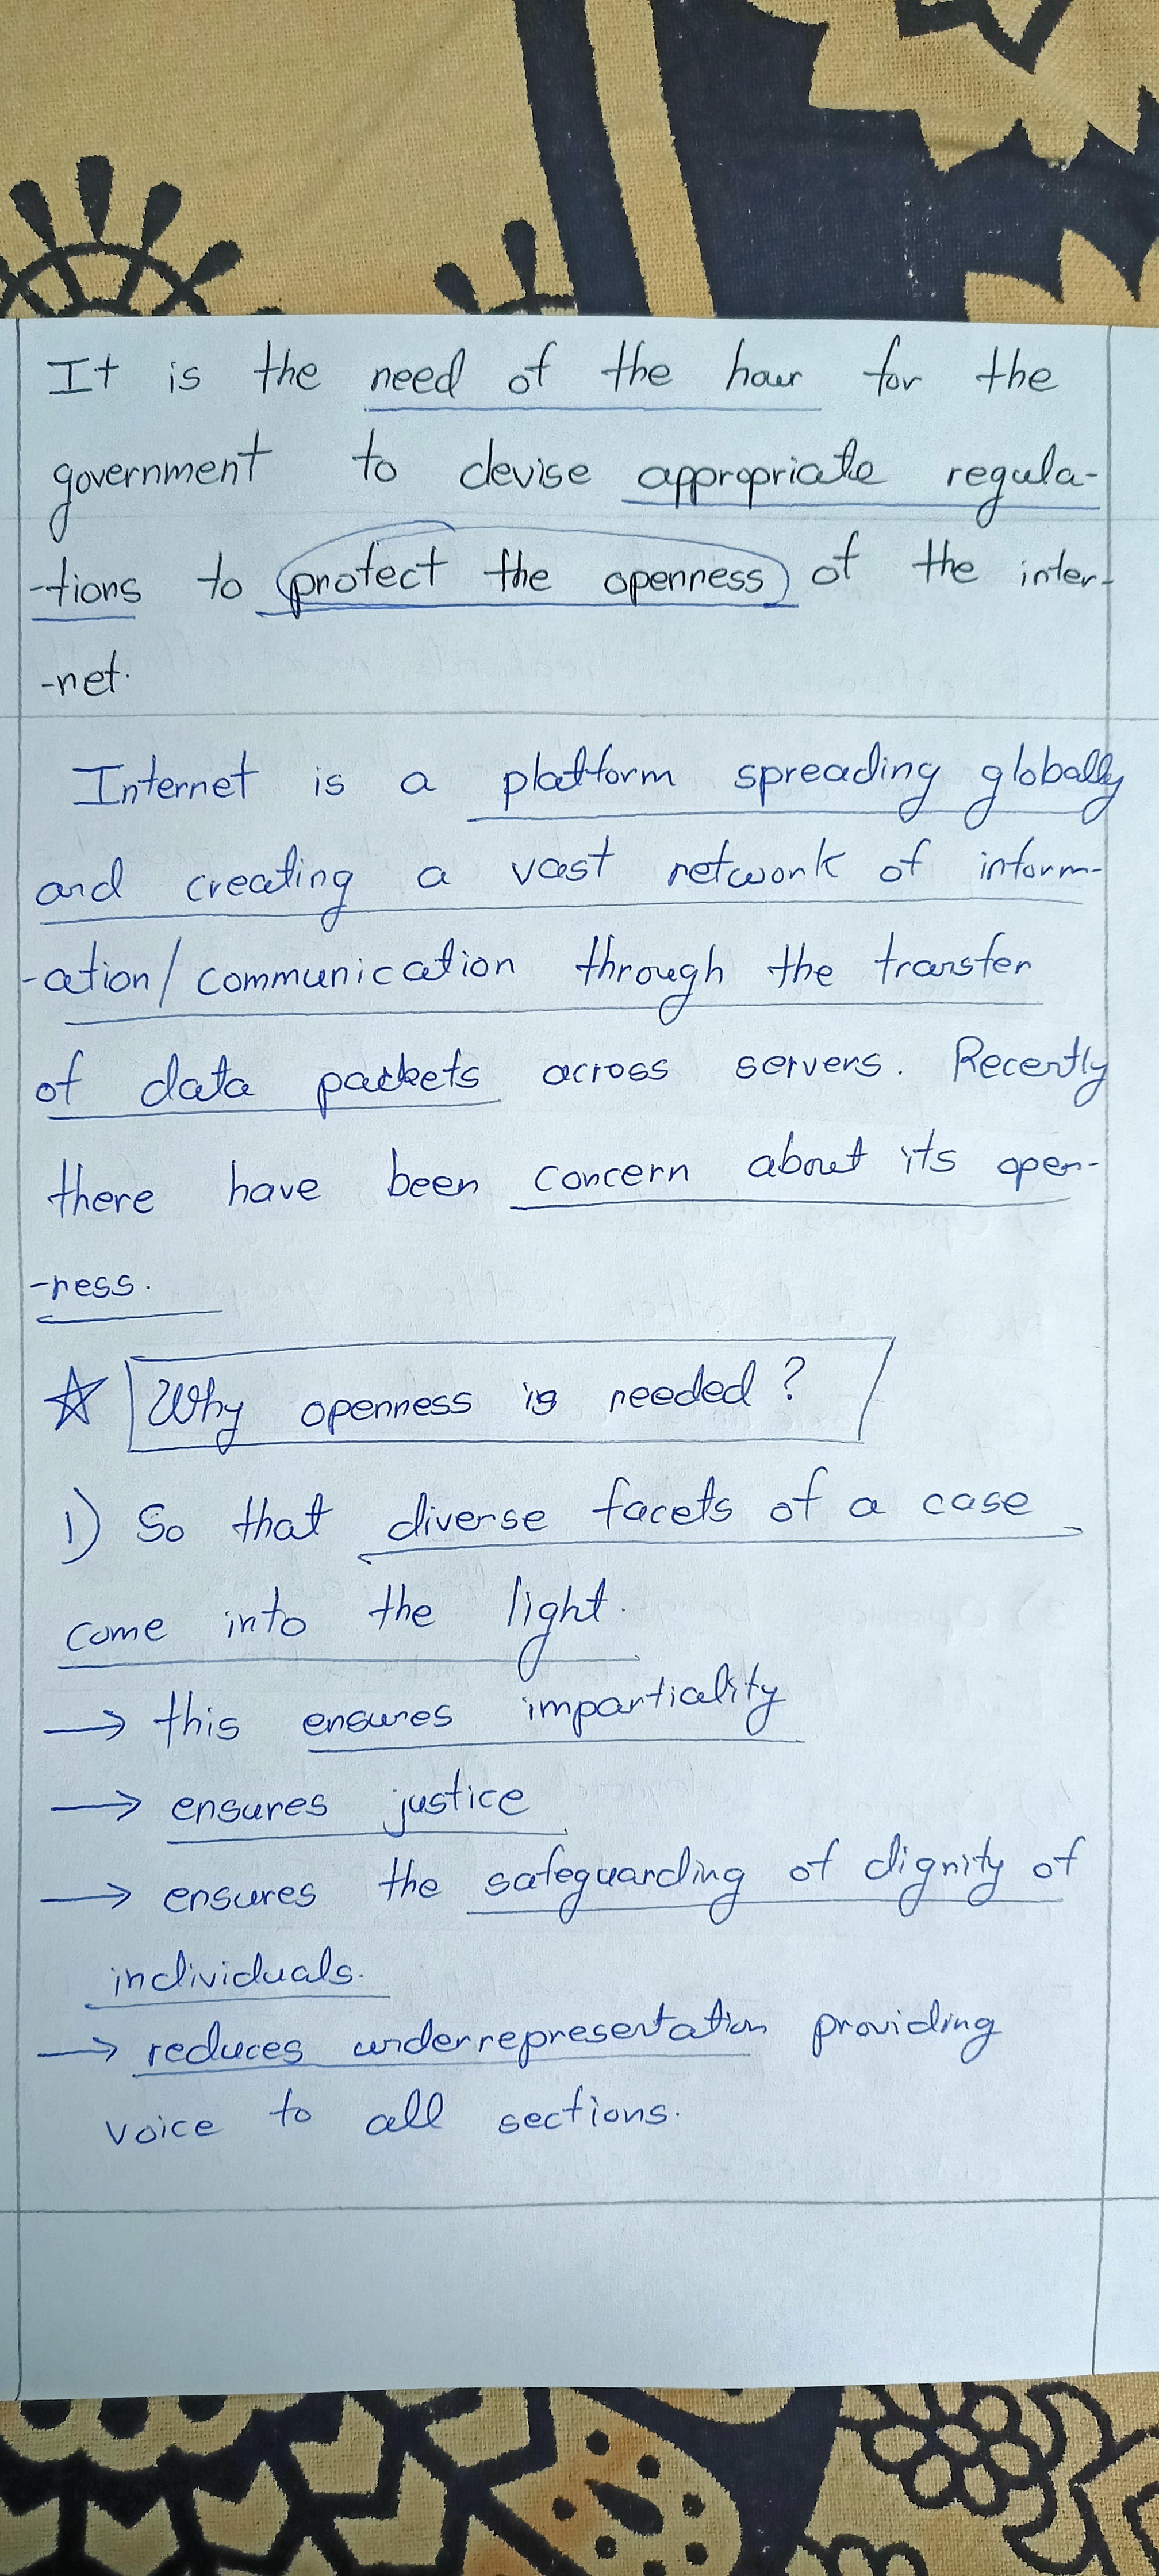 It is the need of the hour for the
government to devise appropriate regula-
-tions to protect the openness of the inter-
-net.
Internet is a platform spreading globally
and creating a vast network of inform-
-ation/communication through the transfer
of data packets across servers. Recently
there have been concern about its open-
-ness.
☆ Why openness is needed?
1) So that diverse facets of a case
come into the light.
→ this ensures impartiality
→ ensures justice
→ ensures the safeguarding of dignity of
individuals.
→ reduces underrepresentation providing
voice to all sections.